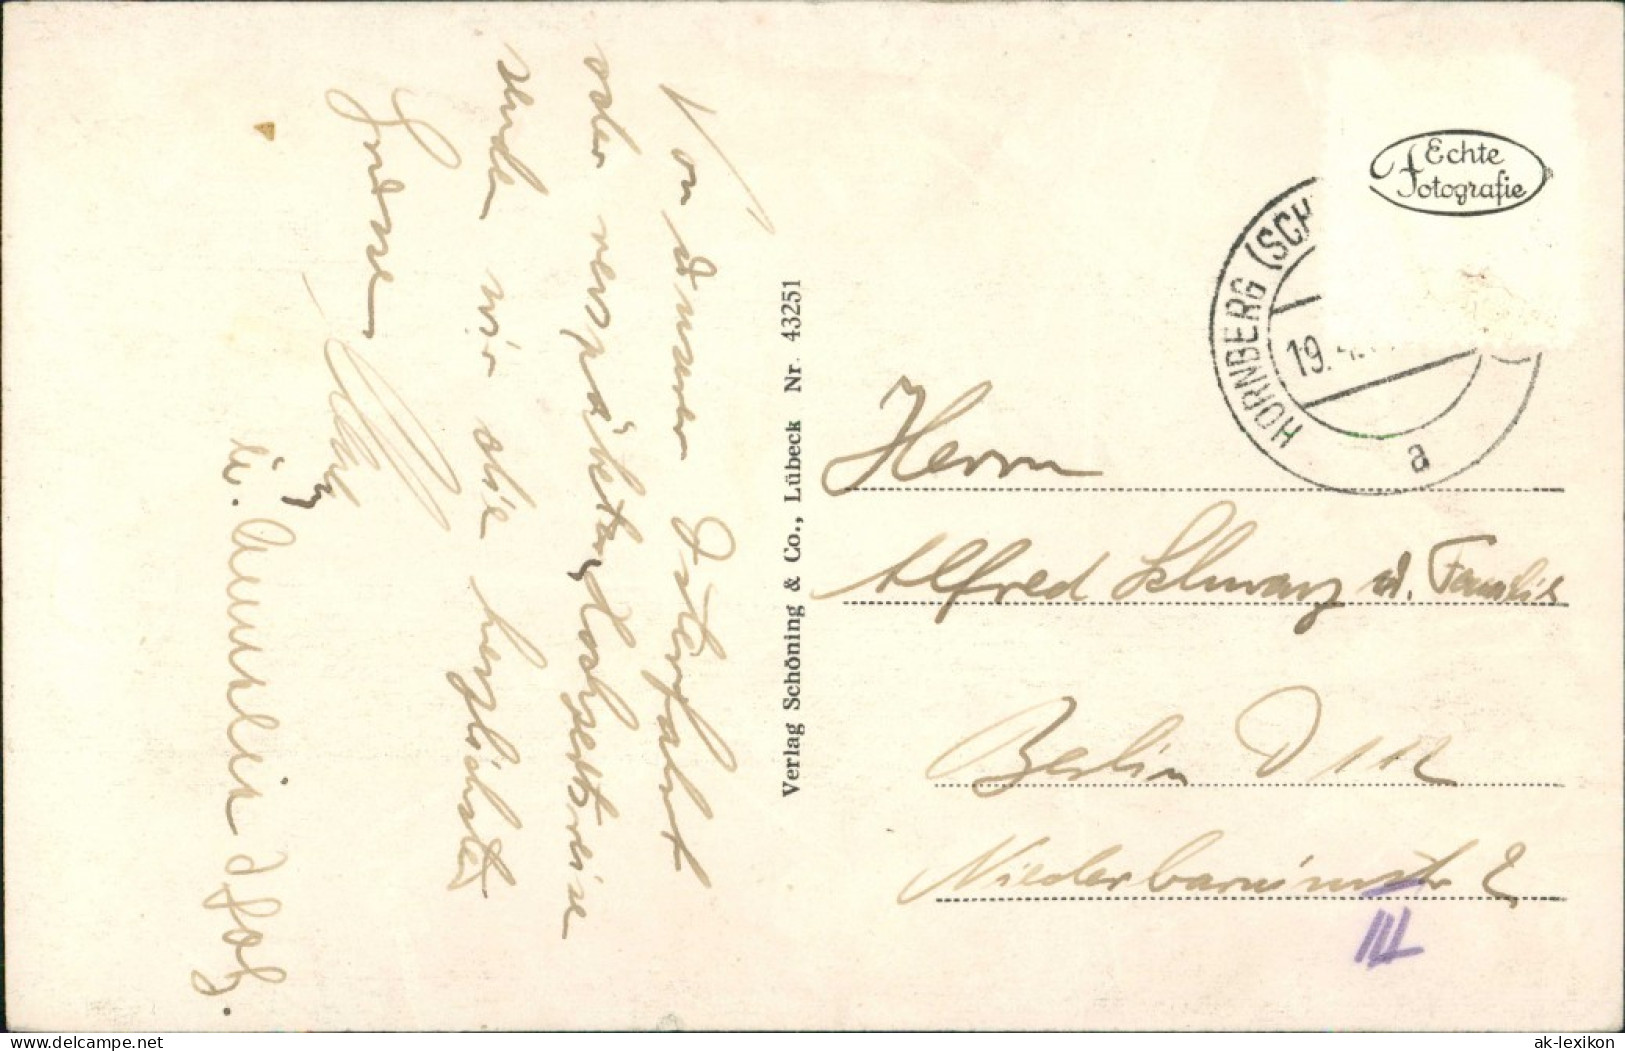 Von unserer Osterfahrt
oder verspäteten Hochzeitsreise
senden wir die herzlichsten
Grüsse
u. Annelie
Verlag Schöning & Co., Lübeck Nr. 43251
Echte
Fotografie
HORNBERG (SCH
19. 4.
a
Herrn
Alfred Schwarz u. Familie
Berlin O 112
Niederbarnimstr 2
III
hip-post.com
ak-lexikon